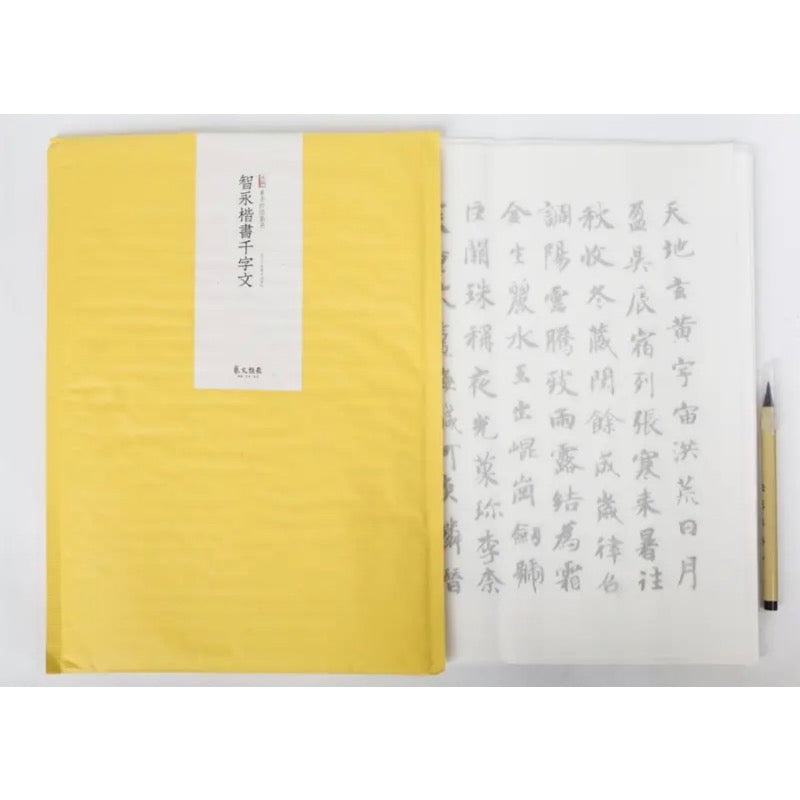 智永楷書千字文
藝文類聚
天地玄黃宇宙洪荒日月
盈昃辰宿列張寒来暑往
秋收冬藏閏餘成歲律召
調陽雲騰致雨露結為霜
金生麗水玉出崐崗劒號
巨闕珠稱夜光菓珍李柰